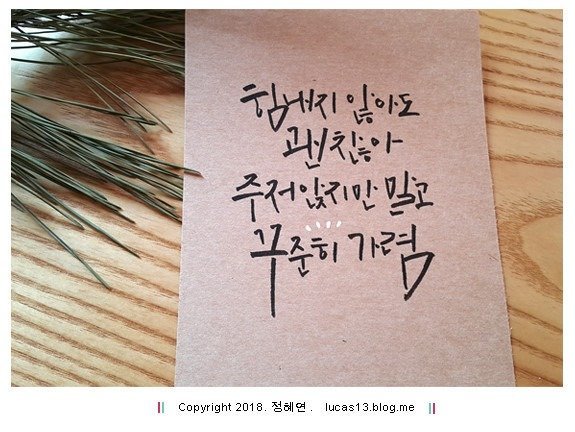 힘내지 않아도
괜찮아
주저앉지만 말고
꾸준히 가렴
Copyright 2018. 정혜연 . lucas13.blog.me